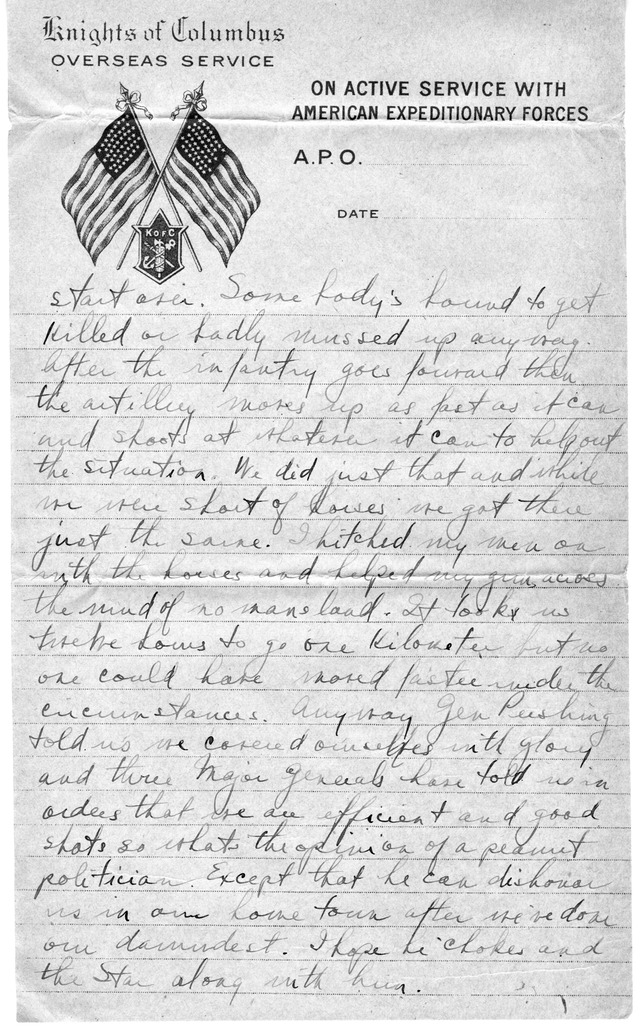 Knights of Columbus
OVERSEAS SERVICE
ON ACTIVE SERVICE WITH
AMERICAN EXPEDITIONARY FORCES
A.P.O.
DATE
K OF C
start over. Some body's bound to get
killed or badly mussed up anyway.
After the infantry goes forward then
the artillery moves up as fast as it can
and shoots at whatever it can to help out
the situation. We did just that and while
we were short of horses we got there
just the same. I hitched my men on
with the horses and helped my gun across
the mud of no mans land. It took us
twelve hours to go one kilometer but no
one could have moved faster under the
circumstances. Anyway Gen Pershing
told us we covered ourselves with glory
and three Major Generals have told us in
orders that we are efficient and good
shots so whats the opinion of a peanut
politician. Except that he can dishonor
us in our home town after we've done
our damndest. I hope he chokes and
the Star along with him.